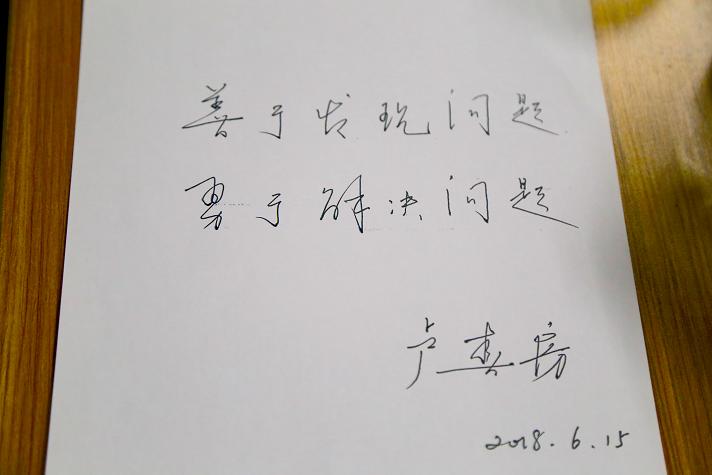 善于发现问题
勇于解决问题
卢春房
2018.6.15